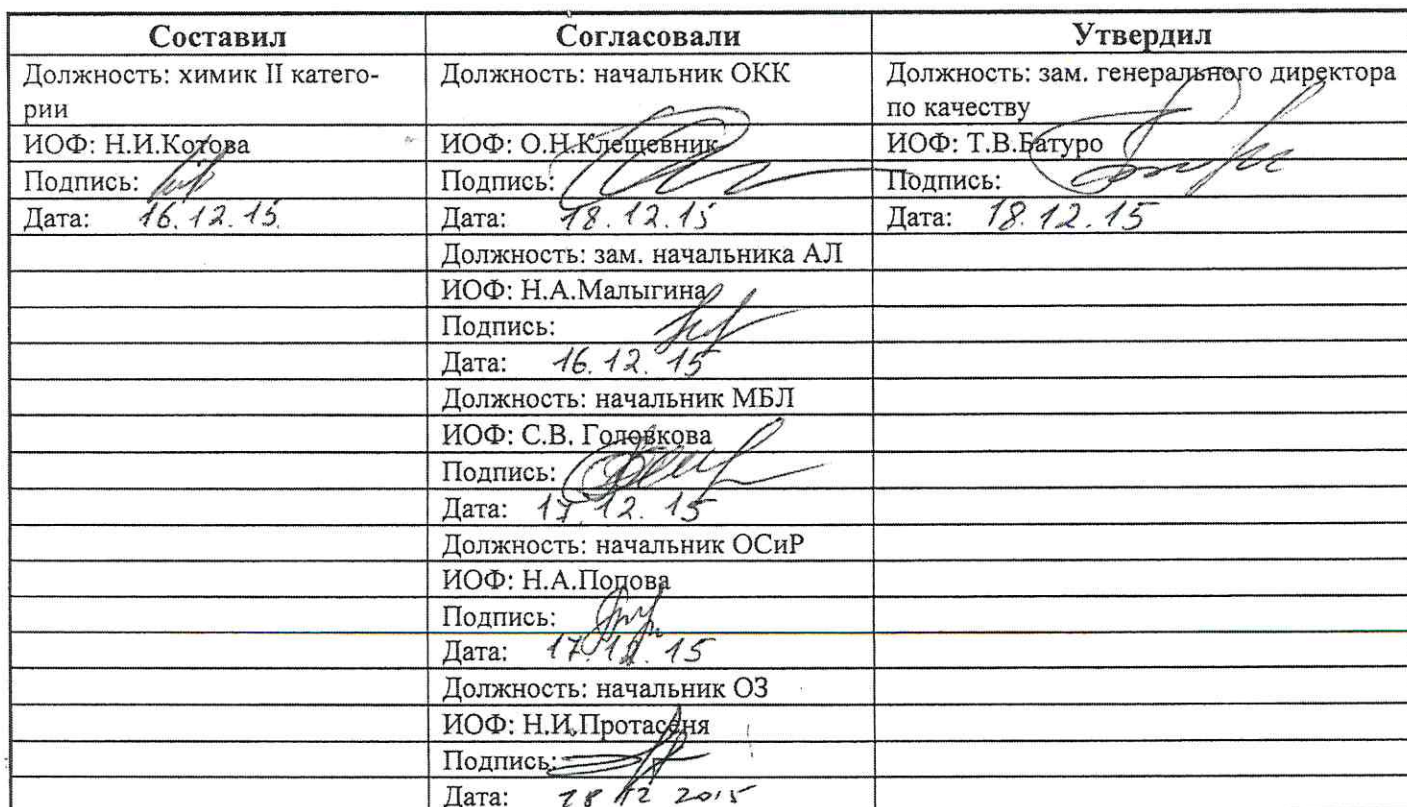 Составил Согласовали Утвердил
Должность: химик II катего- Должность: начальник ОКК Должность: зам. генерального директора
рии по качеству
ИОФ: Н.И.Котова ИОФ: О.Н.Клещевник ИОФ: Т.В.Батуро
Подпись: Подпись: Подпись:
Дата: 16.12.15. Дата: 18.12.15 Дата: 18.12.15
Должность: зам. начальника АЛ
ИОФ: Н.А.Малыгина
Подпись:
Дата: 16.12.15
Должность: начальник МБЛ
ИОФ: С.В. Головкова
Подпись:
Дата: 17.12.15
Должность: начальник ОСиР
ИОФ: Н.А.Попова
Подпись:
Дата: 17.12.15
Должность: начальник ОЗ
ИОФ: Н.И.Протасеня
Подпись:
Дата: 18 12 2015